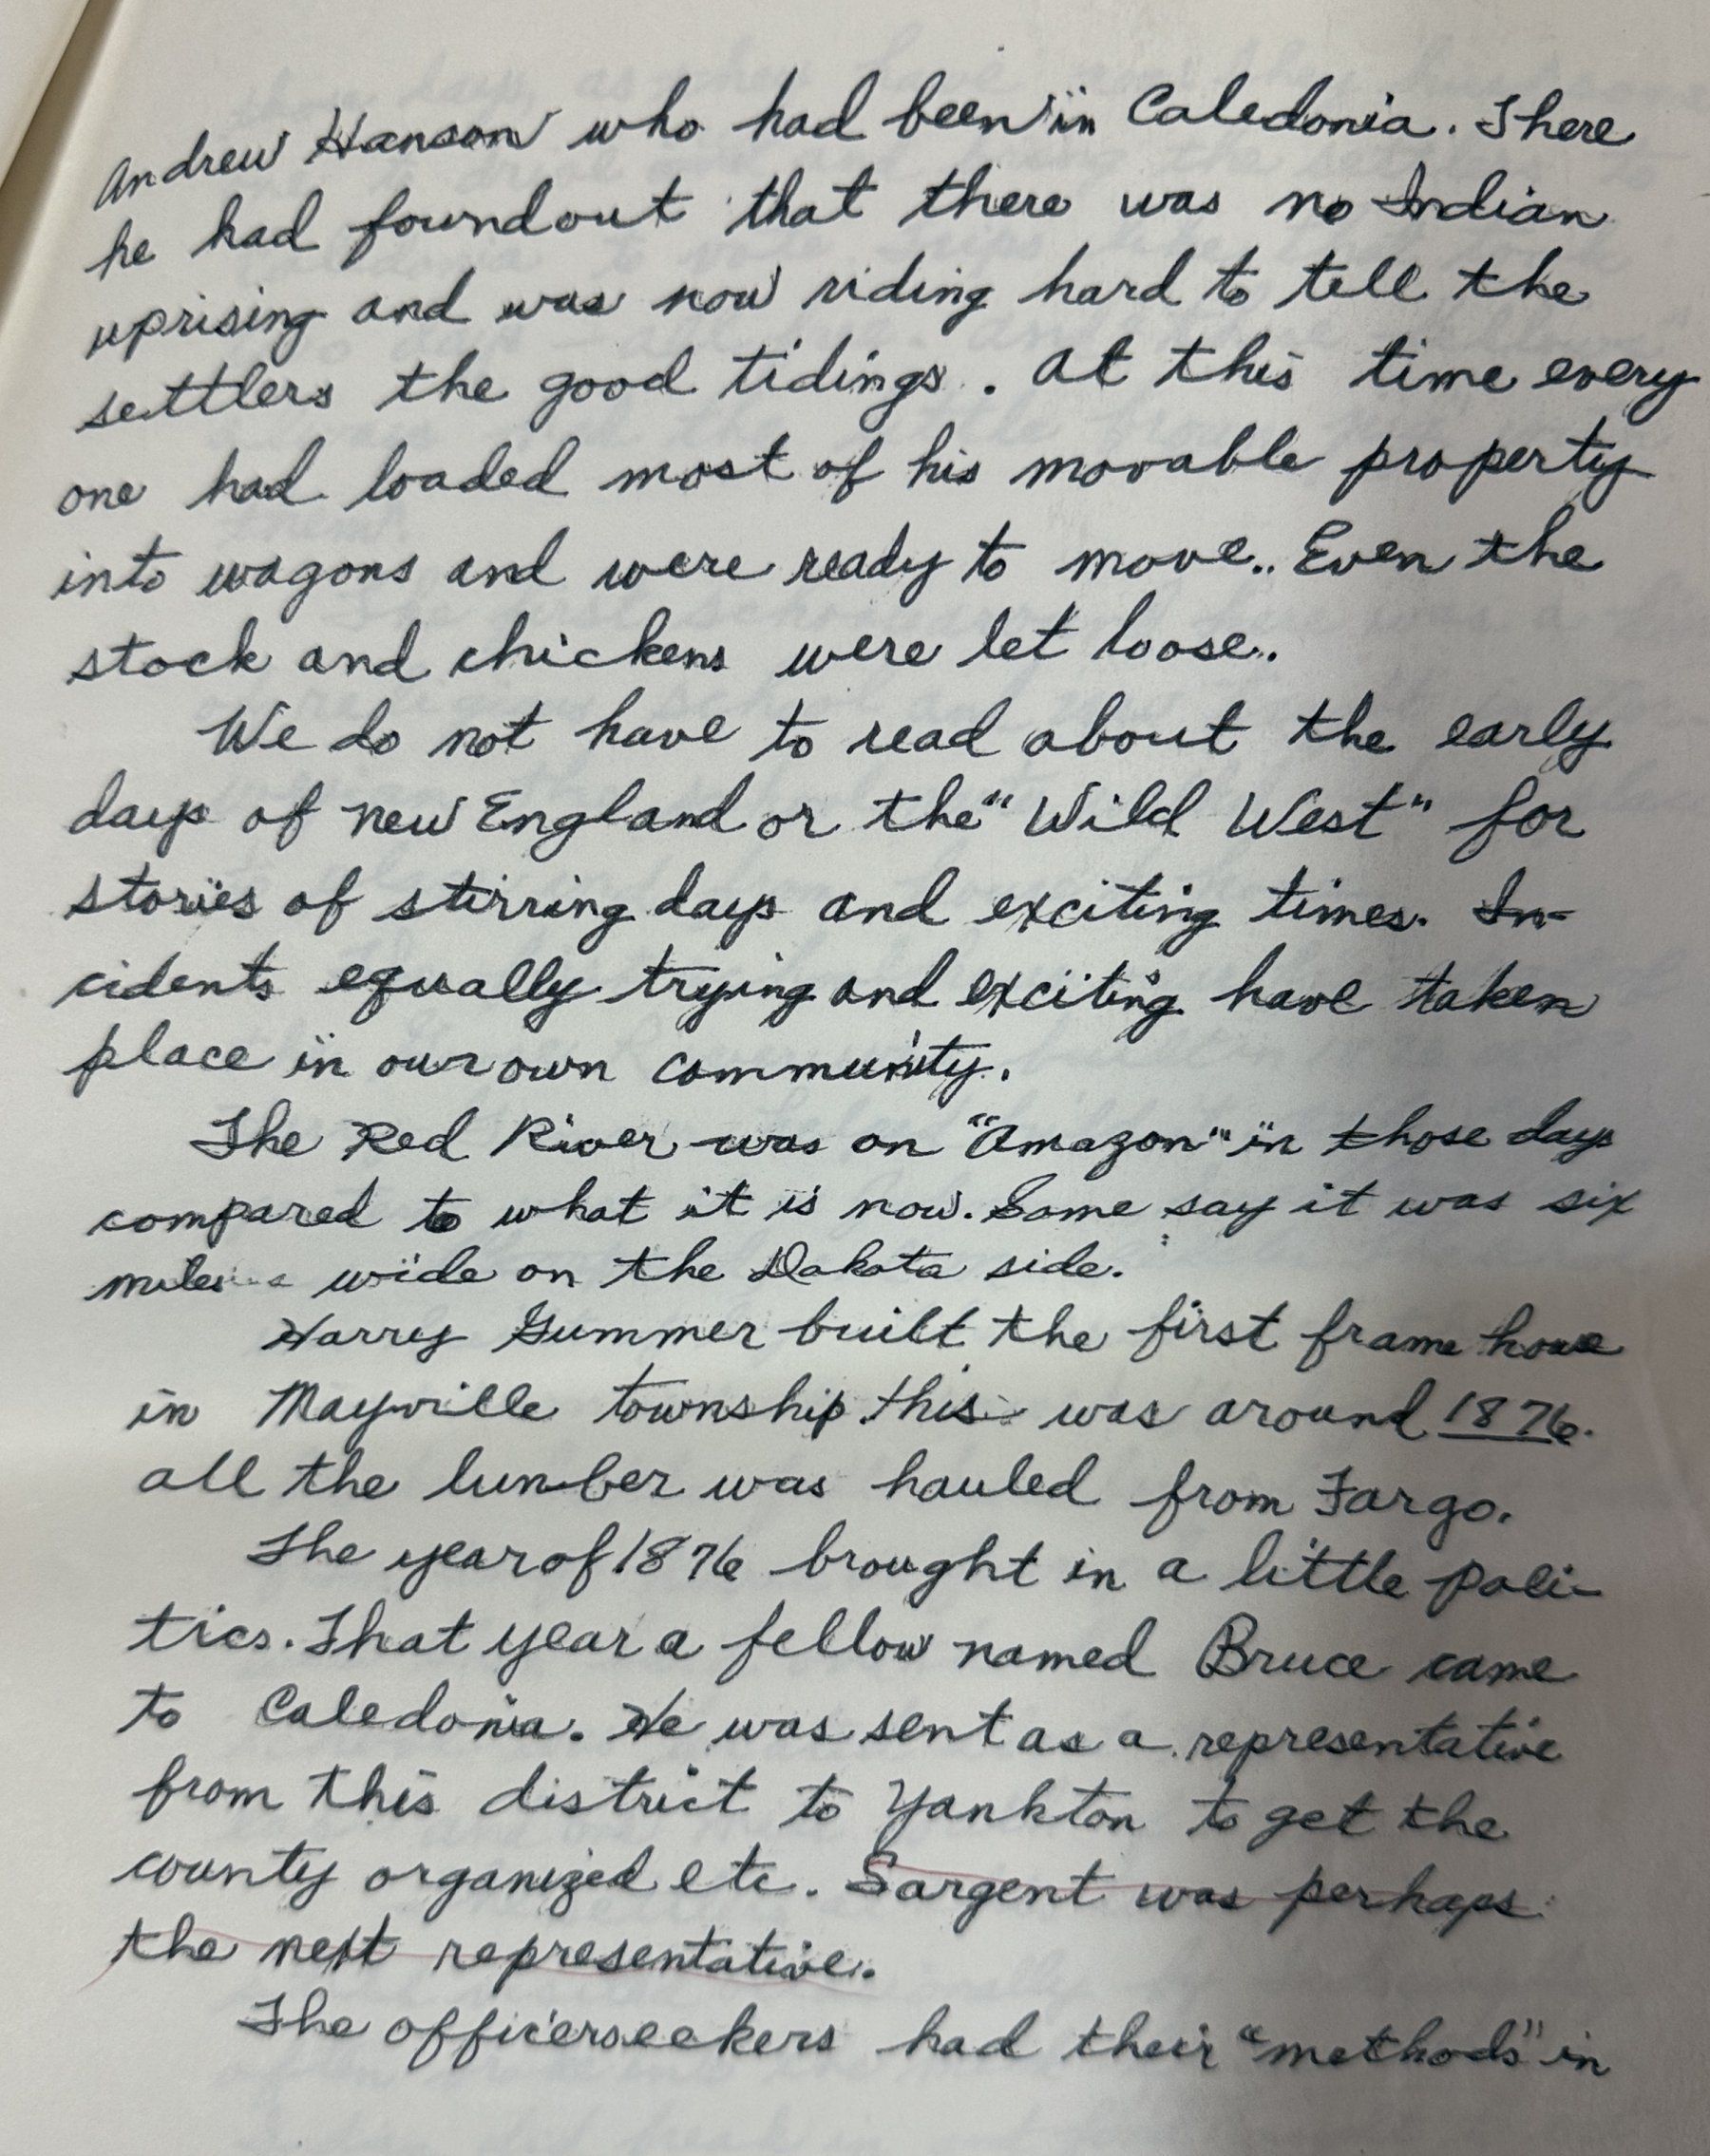 Andrew Hanson who had been in Caledonia. There
he had foundout that there was no Indian
uprising and was now riding hard to tell the
settlers the good tidings. At this time every
one had loaded most of his movable property
into wagons and were ready to move.. Even the
stock and chickens were let loose..
We do not have to read about the early
days of new England or the "Wild West" for
stories of stirring days and exciting times. In-
cidents equally trying and exciting have taken
place in our own community.
The Red River was an "Amazon" in those days
compared to what it is now. Some say it was six
miles wide on the Dakota side.
Harry Gummer built the first frame house
in Mayville township this was around 1876.
all the lumber was hauled from Fargo.
The year of 1876 brought in a little poli-
tics. That year a fellow named Bruce came
to Caledonia. He was sent as a representative
from this district to Yankton to get the
county organized etc. Sargent was perhaps
the next representative.
The officerseekers had their "methods" in